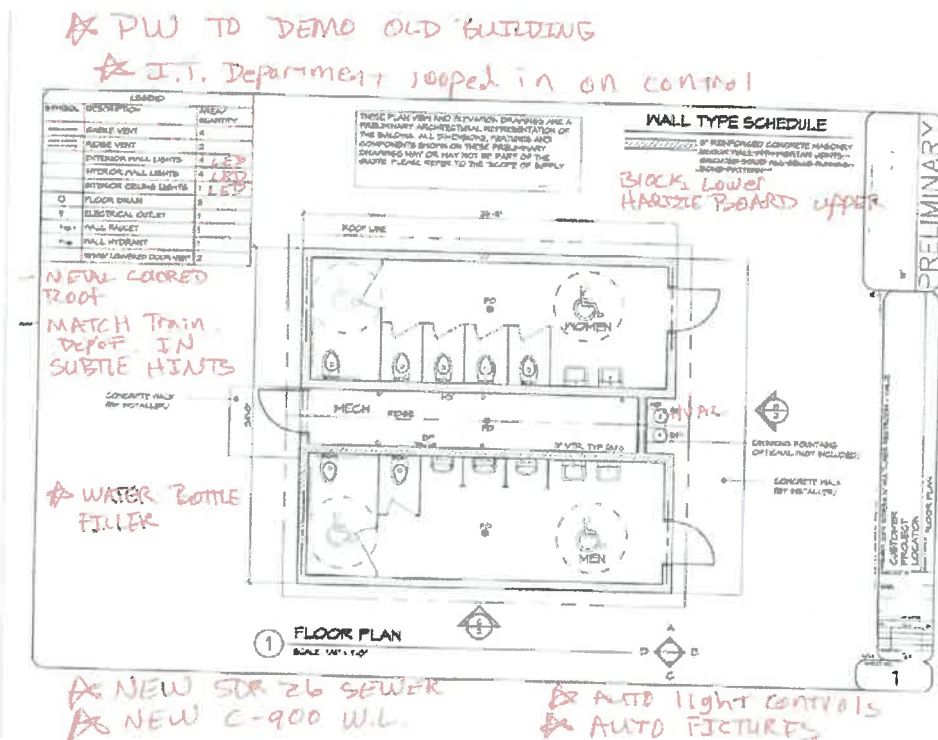 ☆ PW TO DEMO OLD BUILDING
☆ I.T. Department looped in on control
LEGEND
SYMBOL DESCRIPTION AREA/ QUANTITY
GABLE VENT 4
RIDGE VENT 2
EXTERIOR WALL LIGHTS 4 LED
INTERIOR WALL LIGHTS 4 LED
INTERIOR CEILING LIGHTS 1 LED
FLOOR DRAIN 3
ELECTRICAL OUTLET 1
WALL FAUCET 1
WALL HYDRANT 1
LOUVERED DOOR VENT 2
THESE PLAN VIEW AND ELEVATION DRAWINGS ARE A
PRELIMINARY ARCHITECTURAL REPRESENTATION OF
THE BUILDING. ALL DIMENSIONS, FEATURES AND
COMPONENTS SHOWN ON THESE PRELIMINARY
DRAWINGS MAY OR MAY NOT BE PART OF THE
QUOTE. PLEASE REFER TO THE "SCOPE OF SUPPLY
WALL TYPE SCHEDULE
8" REINFORCED CONCRETE MASONRY
BLOCK Lower
HARDIE BOARD UPPER
PRELIMINARY
METAL COLORED
Roof
MATCH Train
Depot IN
SUBTLE HINTS
ROOF LINE
FD
WOMEN
CONCRETE WALK
(BY INSTALLER)
MECH
RIDGE
FD
HVAC
DRINKING FOUNTAINS
OPTIONAL (NOT INCLUDED)
CONCRETE WALK
(BY INSTALLER)
☆ WATER BOTTLE
FILLER
FD
MEN
CUSTOMER
PROJECT
LOCATION
FLOOR PLAN
1 FLOOR PLAN
A
D B
C
1
☆ NEW SDR 26 SEWER
☆ NEW C-900 W.L.
☆ AUTO light controls
☆ AUTO FICTURES